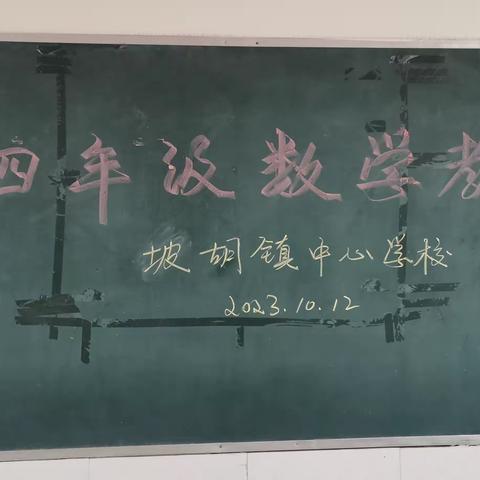 四年级数学教
坡胡镇中心学校
2023.10.12